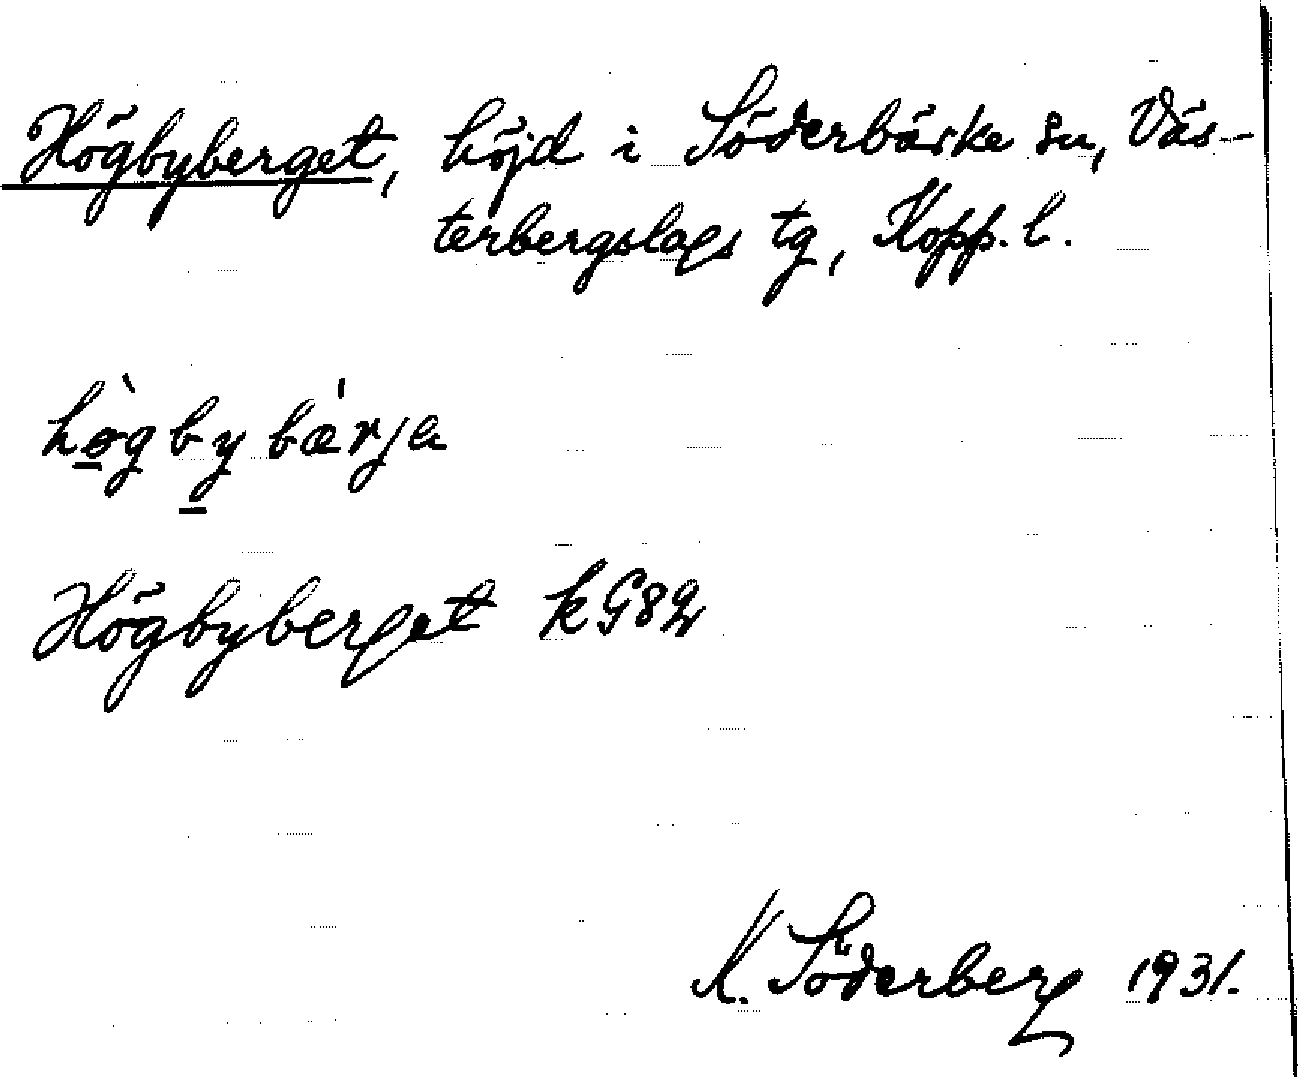 Högbyberget, höjd i Söderbärke sn, Väs-
terbergslags tg, Kopp. l.
hø̀gby bæ'rja
Högbyberget kG82
K. Söderberg 1931.